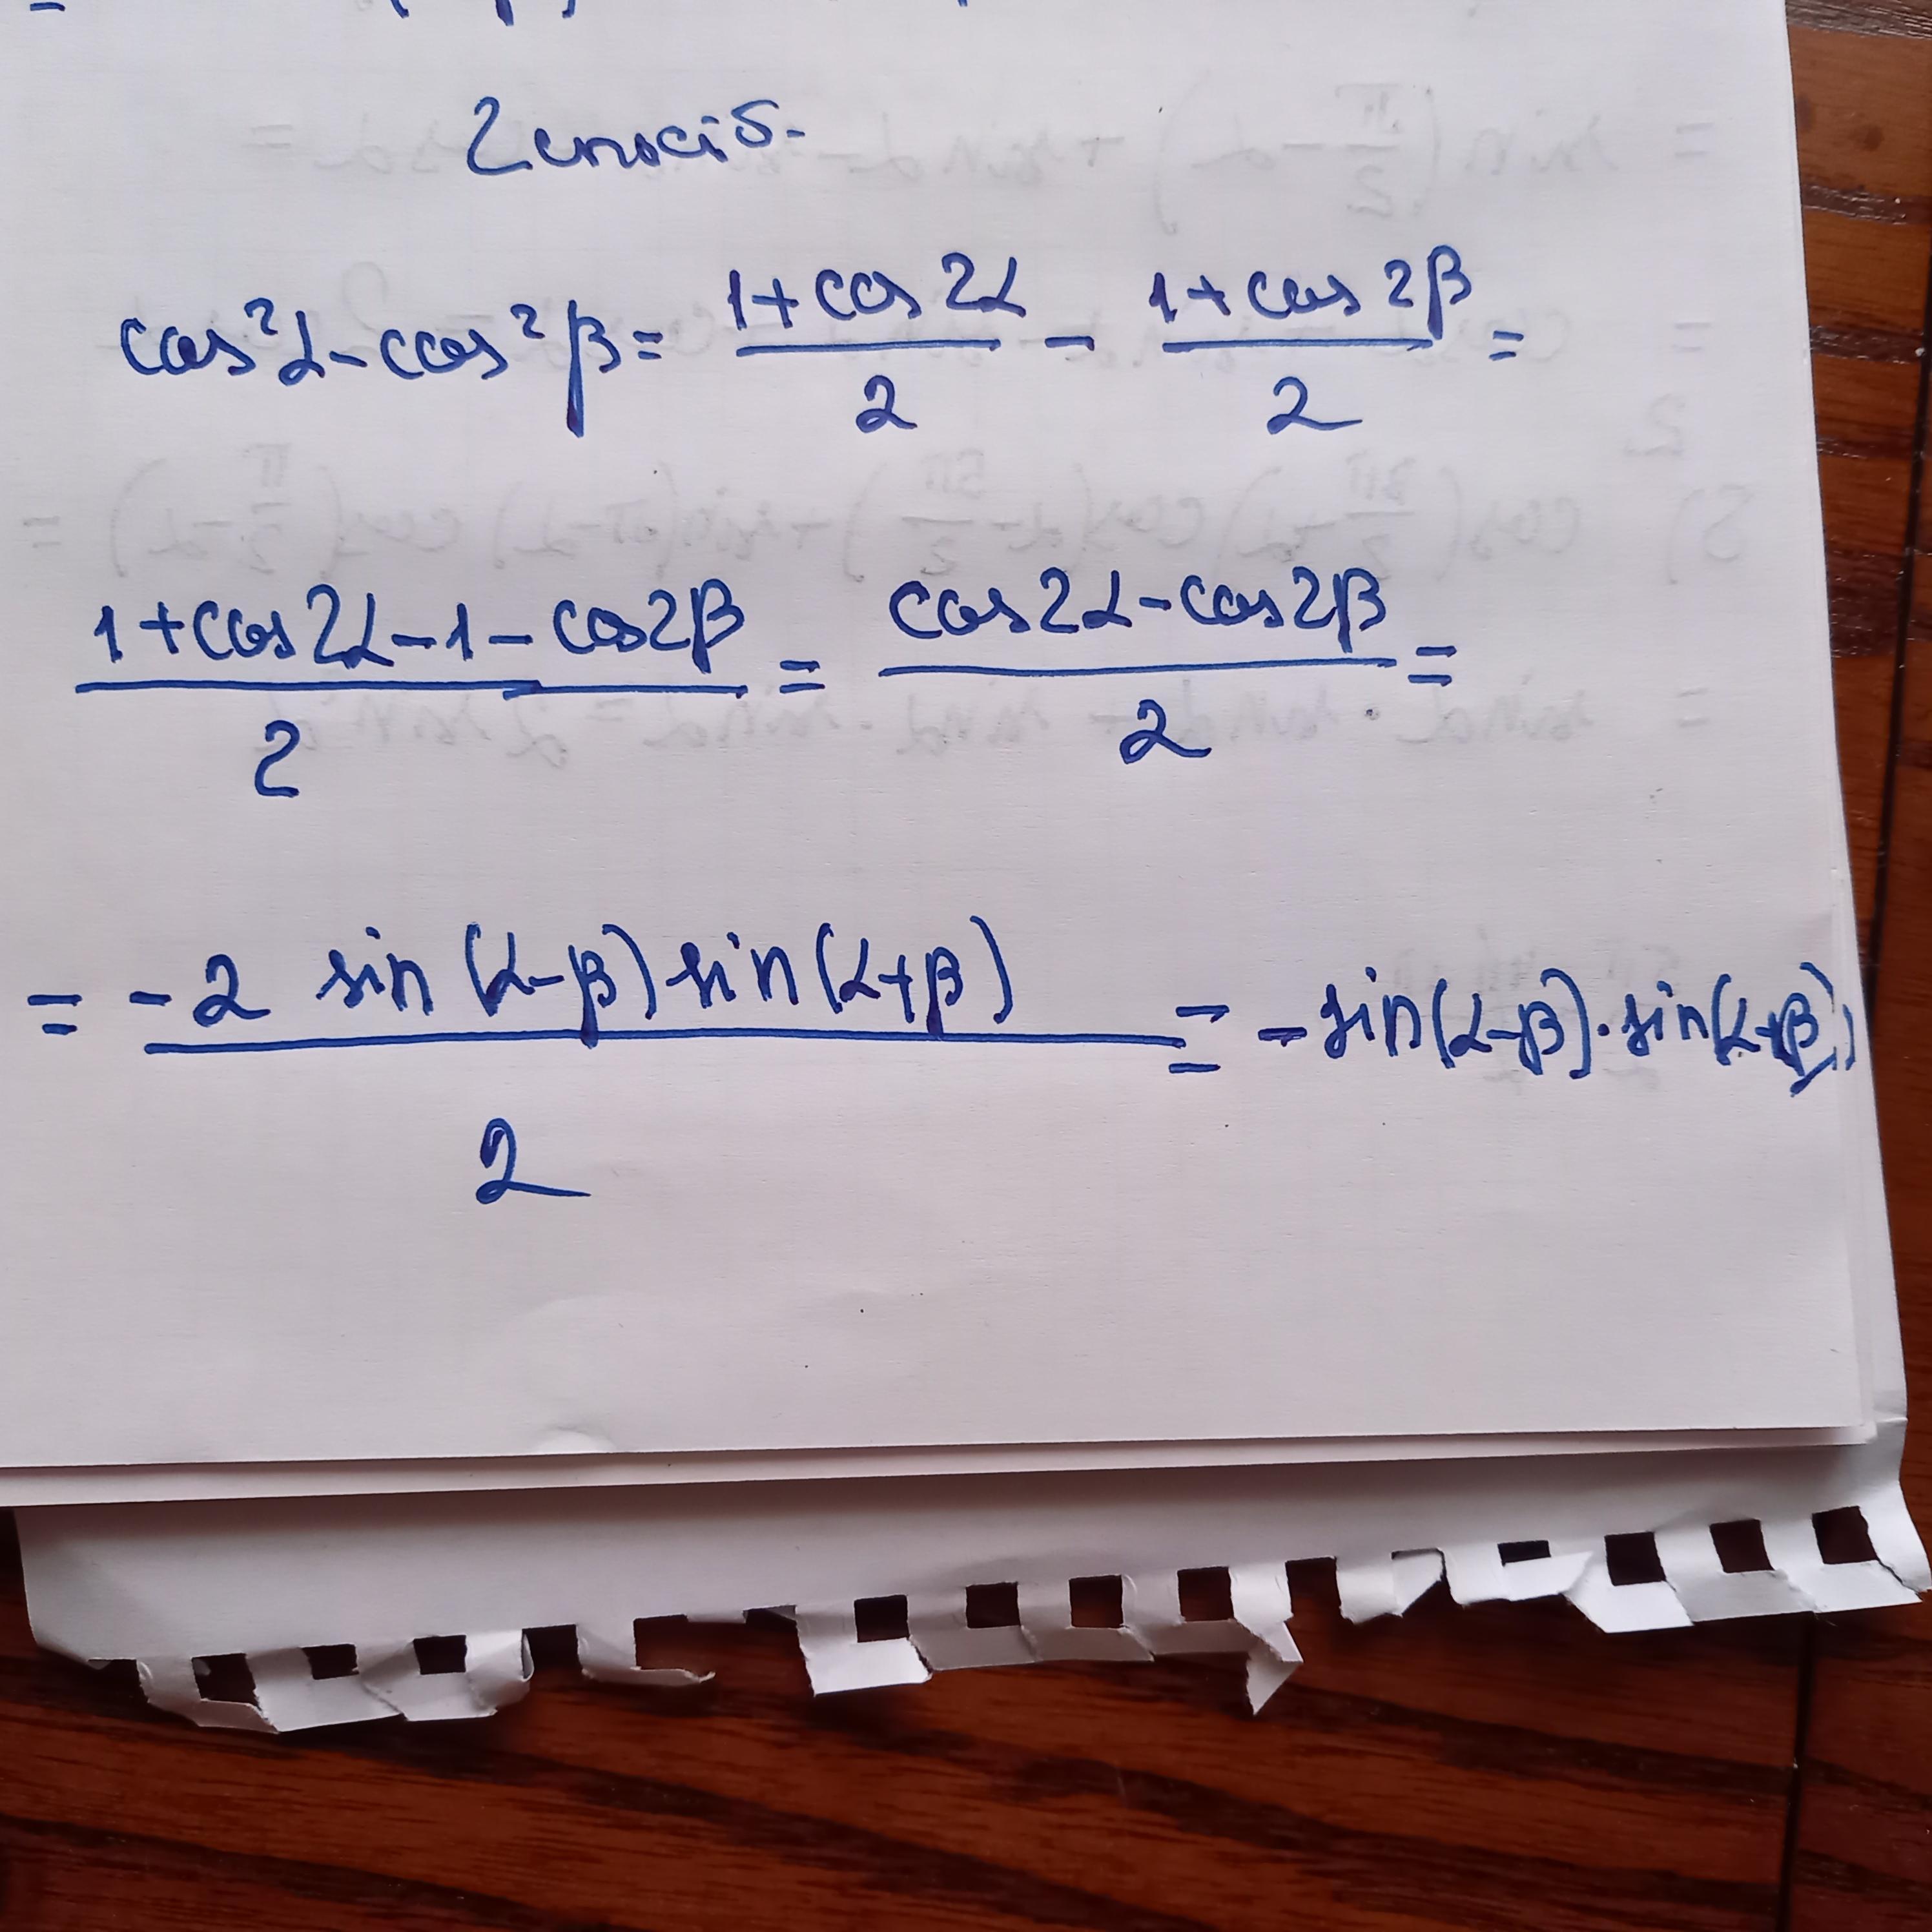 2 спосіб.
cos²α - cos²β = (1 + cos 2α)/2 - (1 + cos 2β)/2 =
(1 + cos2α - 1 - cos2β)/2 = (cos2α - cos2β)/2 =
= (-2 sin (α-β) sin(α+β))/2 = - sin(α-β) · sin(α+β)